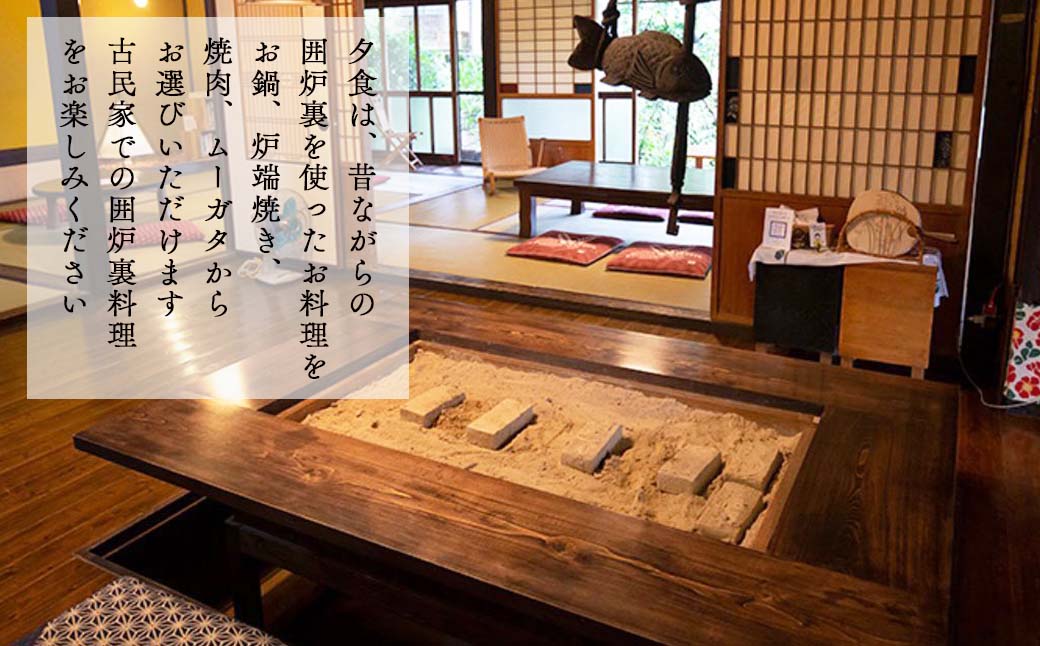 夕食は、昔ながらの
囲炉裏を使ったお料理を
お鍋、炉端焼き、
焼肉、ムーガタから
お選びいただけます
古民家での囲炉裏料理
をお楽しみください